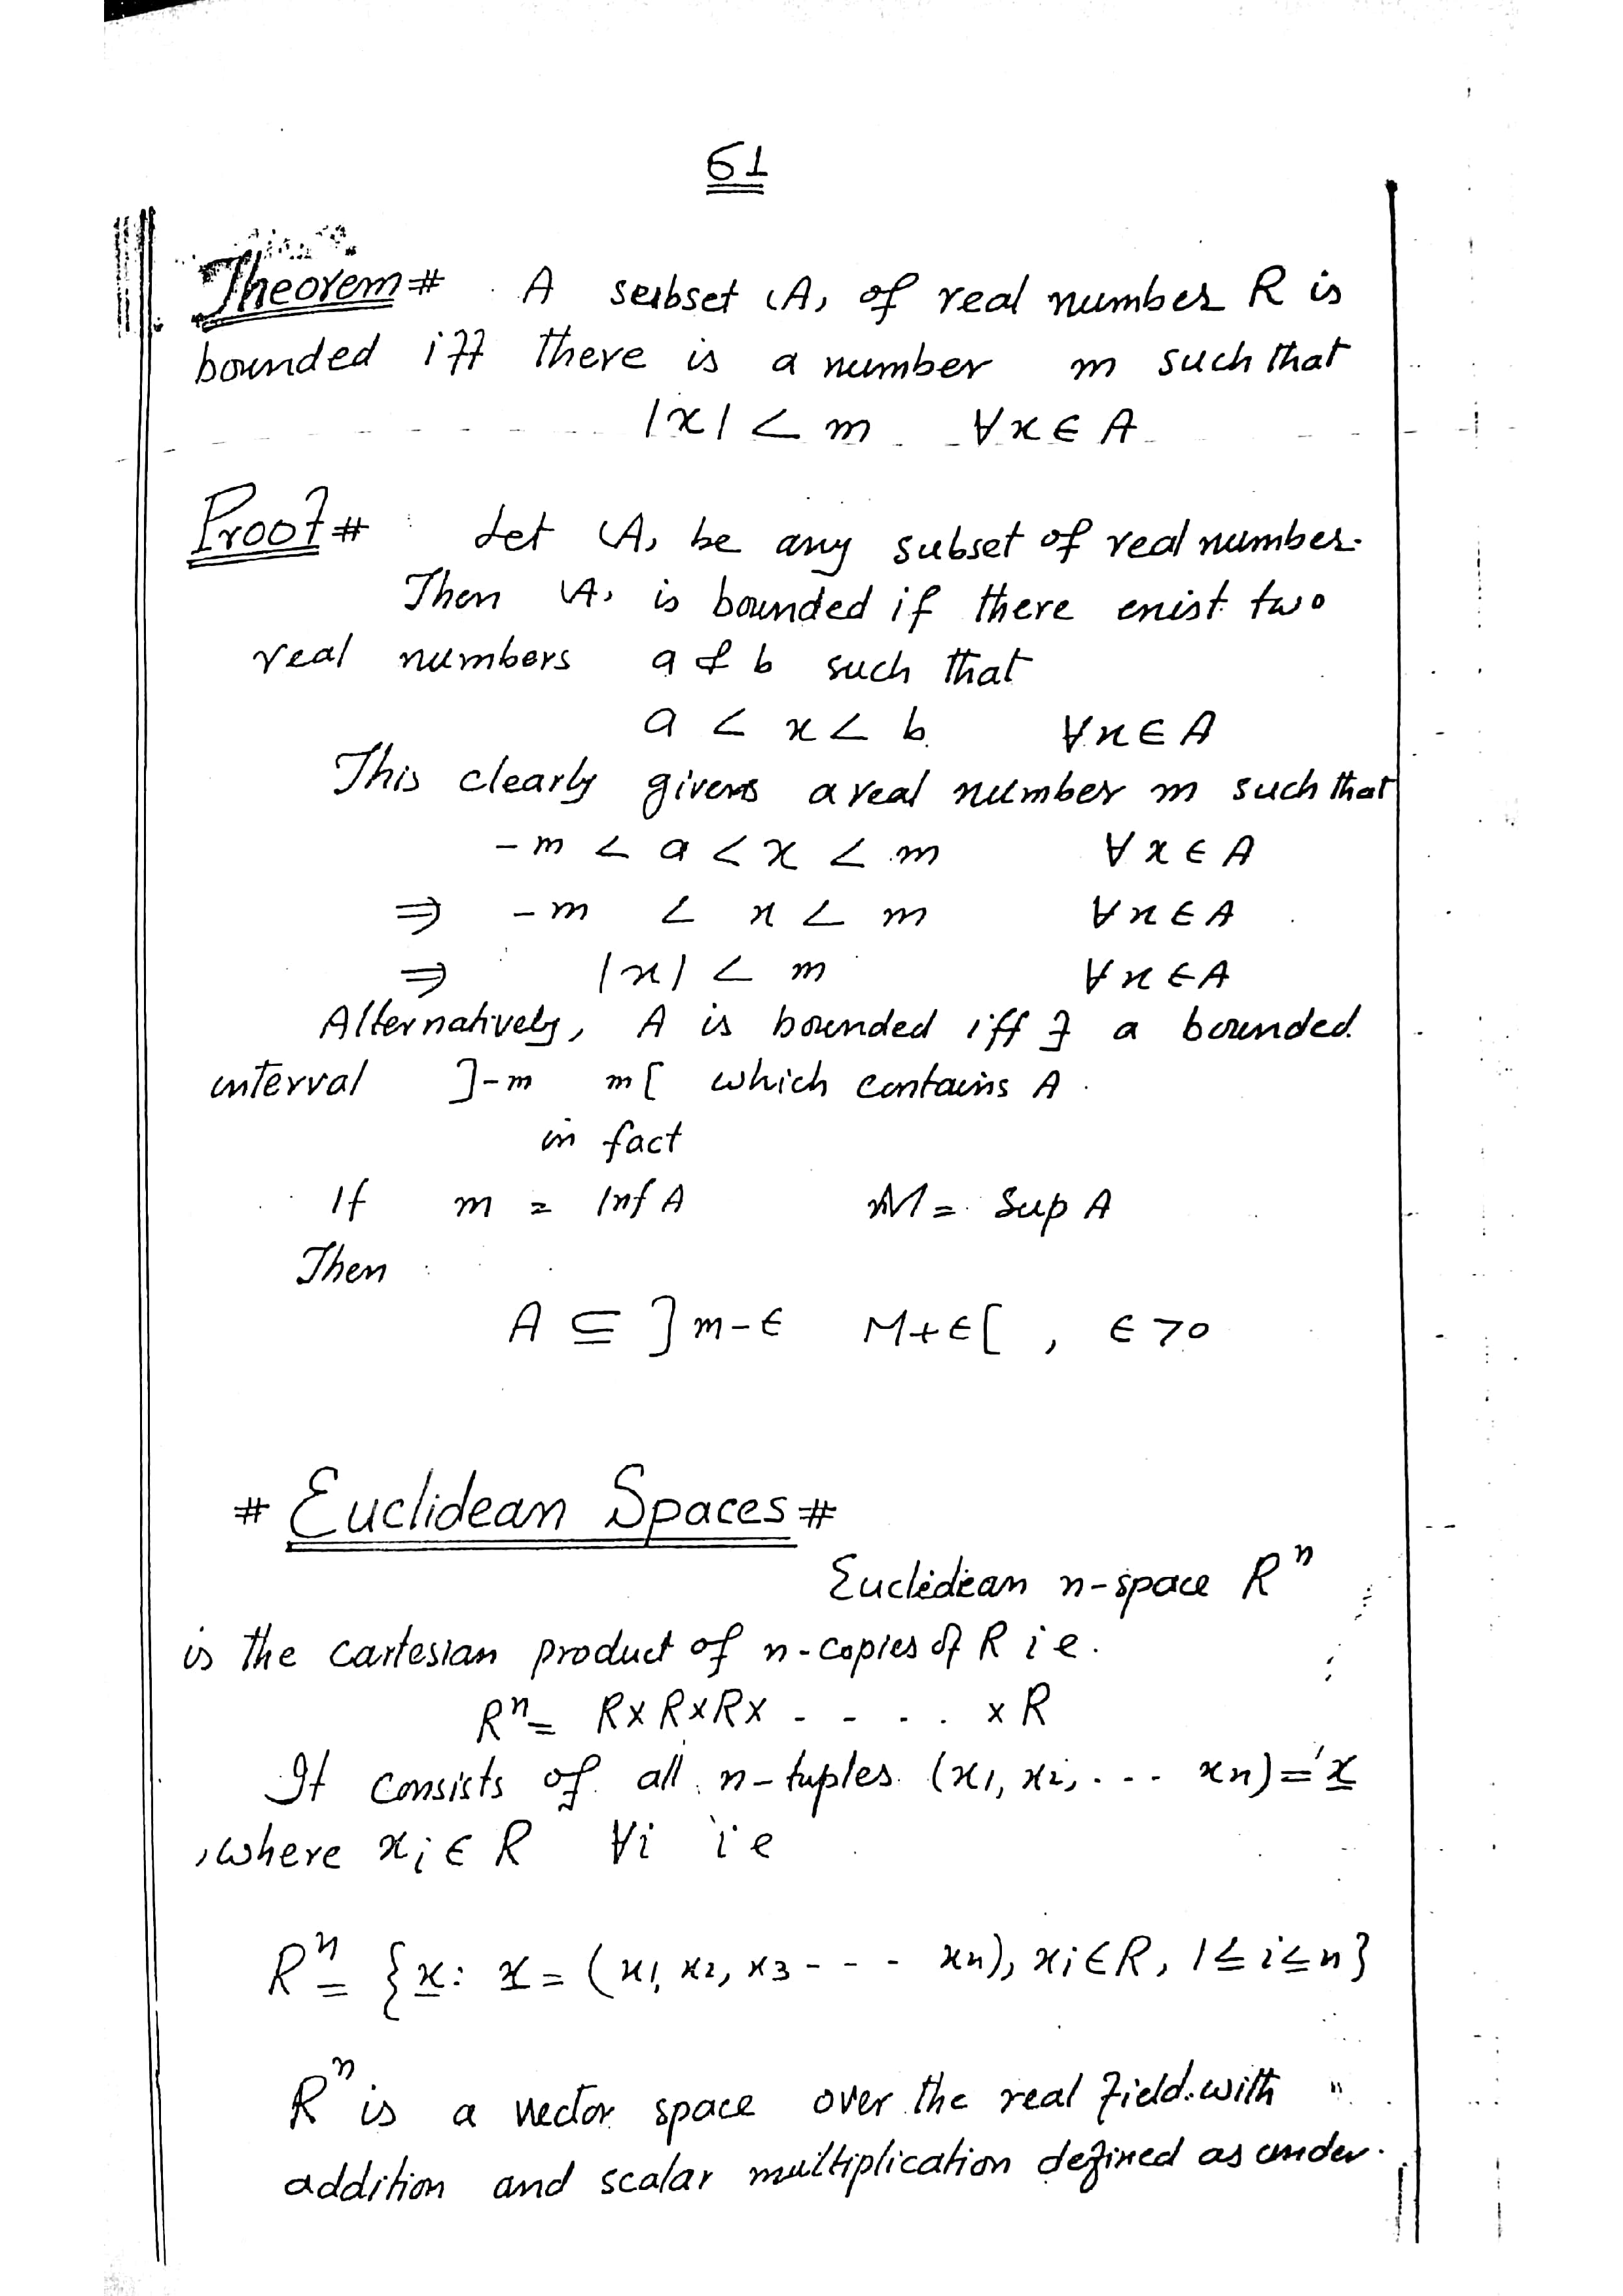 61
Theorem # A subset 'A' of real number R is
bounded iff there is a number m such that
|x| < m ∀x ∈ A
Proof # Let 'A' be any subset of real number.
Then 'A' is bounded if there exist two
real numbers a & b such that
a < x < b ∀x ∈ A
This clearly gives a real number m such that
-m < a < x < m ∀x ∈ A
⇒ -m < x < m ∀x ∈ A
⇒ |x| < m ∀x ∈ A
Alternatively, A is bounded iff ∃ a bounded
interval ]-m m[ which contains A.
in fact
If m = Inf A M = Sup A
Then
A ⊆ ]m-ε M+ε[ , ε > 0
# Euclidean Spaces #
Euclidean n-space Rⁿ
is the cartesian product of n-copies of R i e.
Rⁿ = R x R x R x - - . . . x R
It consists of all n-tuples (x₁, x₂, . - - xₙ) = x̲
, where xᵢ ∈ R ∀i i e
Rⁿ = {x̲ : x̲ = (x₁, x₂, x₃ - - - xₙ), xᵢ ∈ R, 1 ≤ i ≤ n}
Rⁿ is a vector space over the real field with
addition and scalar multiplication defined as under.